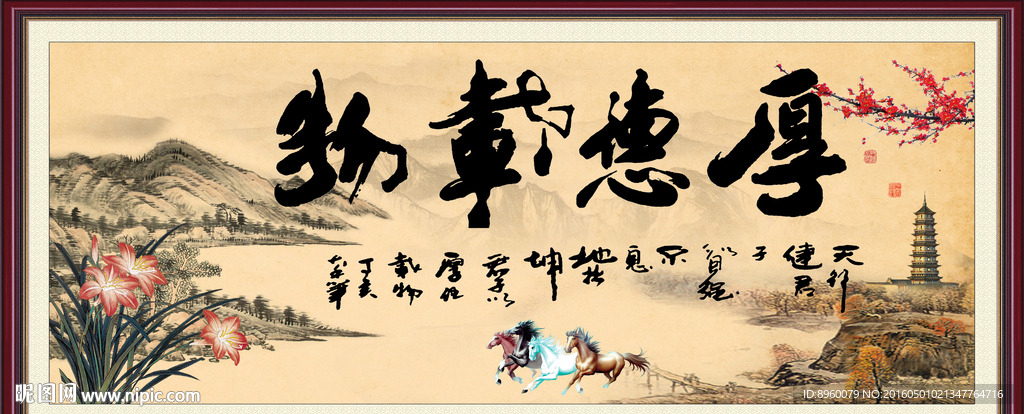 厚德载物
天行
健君
子
以自强
不
息
地势
坤
君子以
厚德
载物
丁亥
昵图网 www.nipic.com
ID:8960079 NO:20160501021347764716